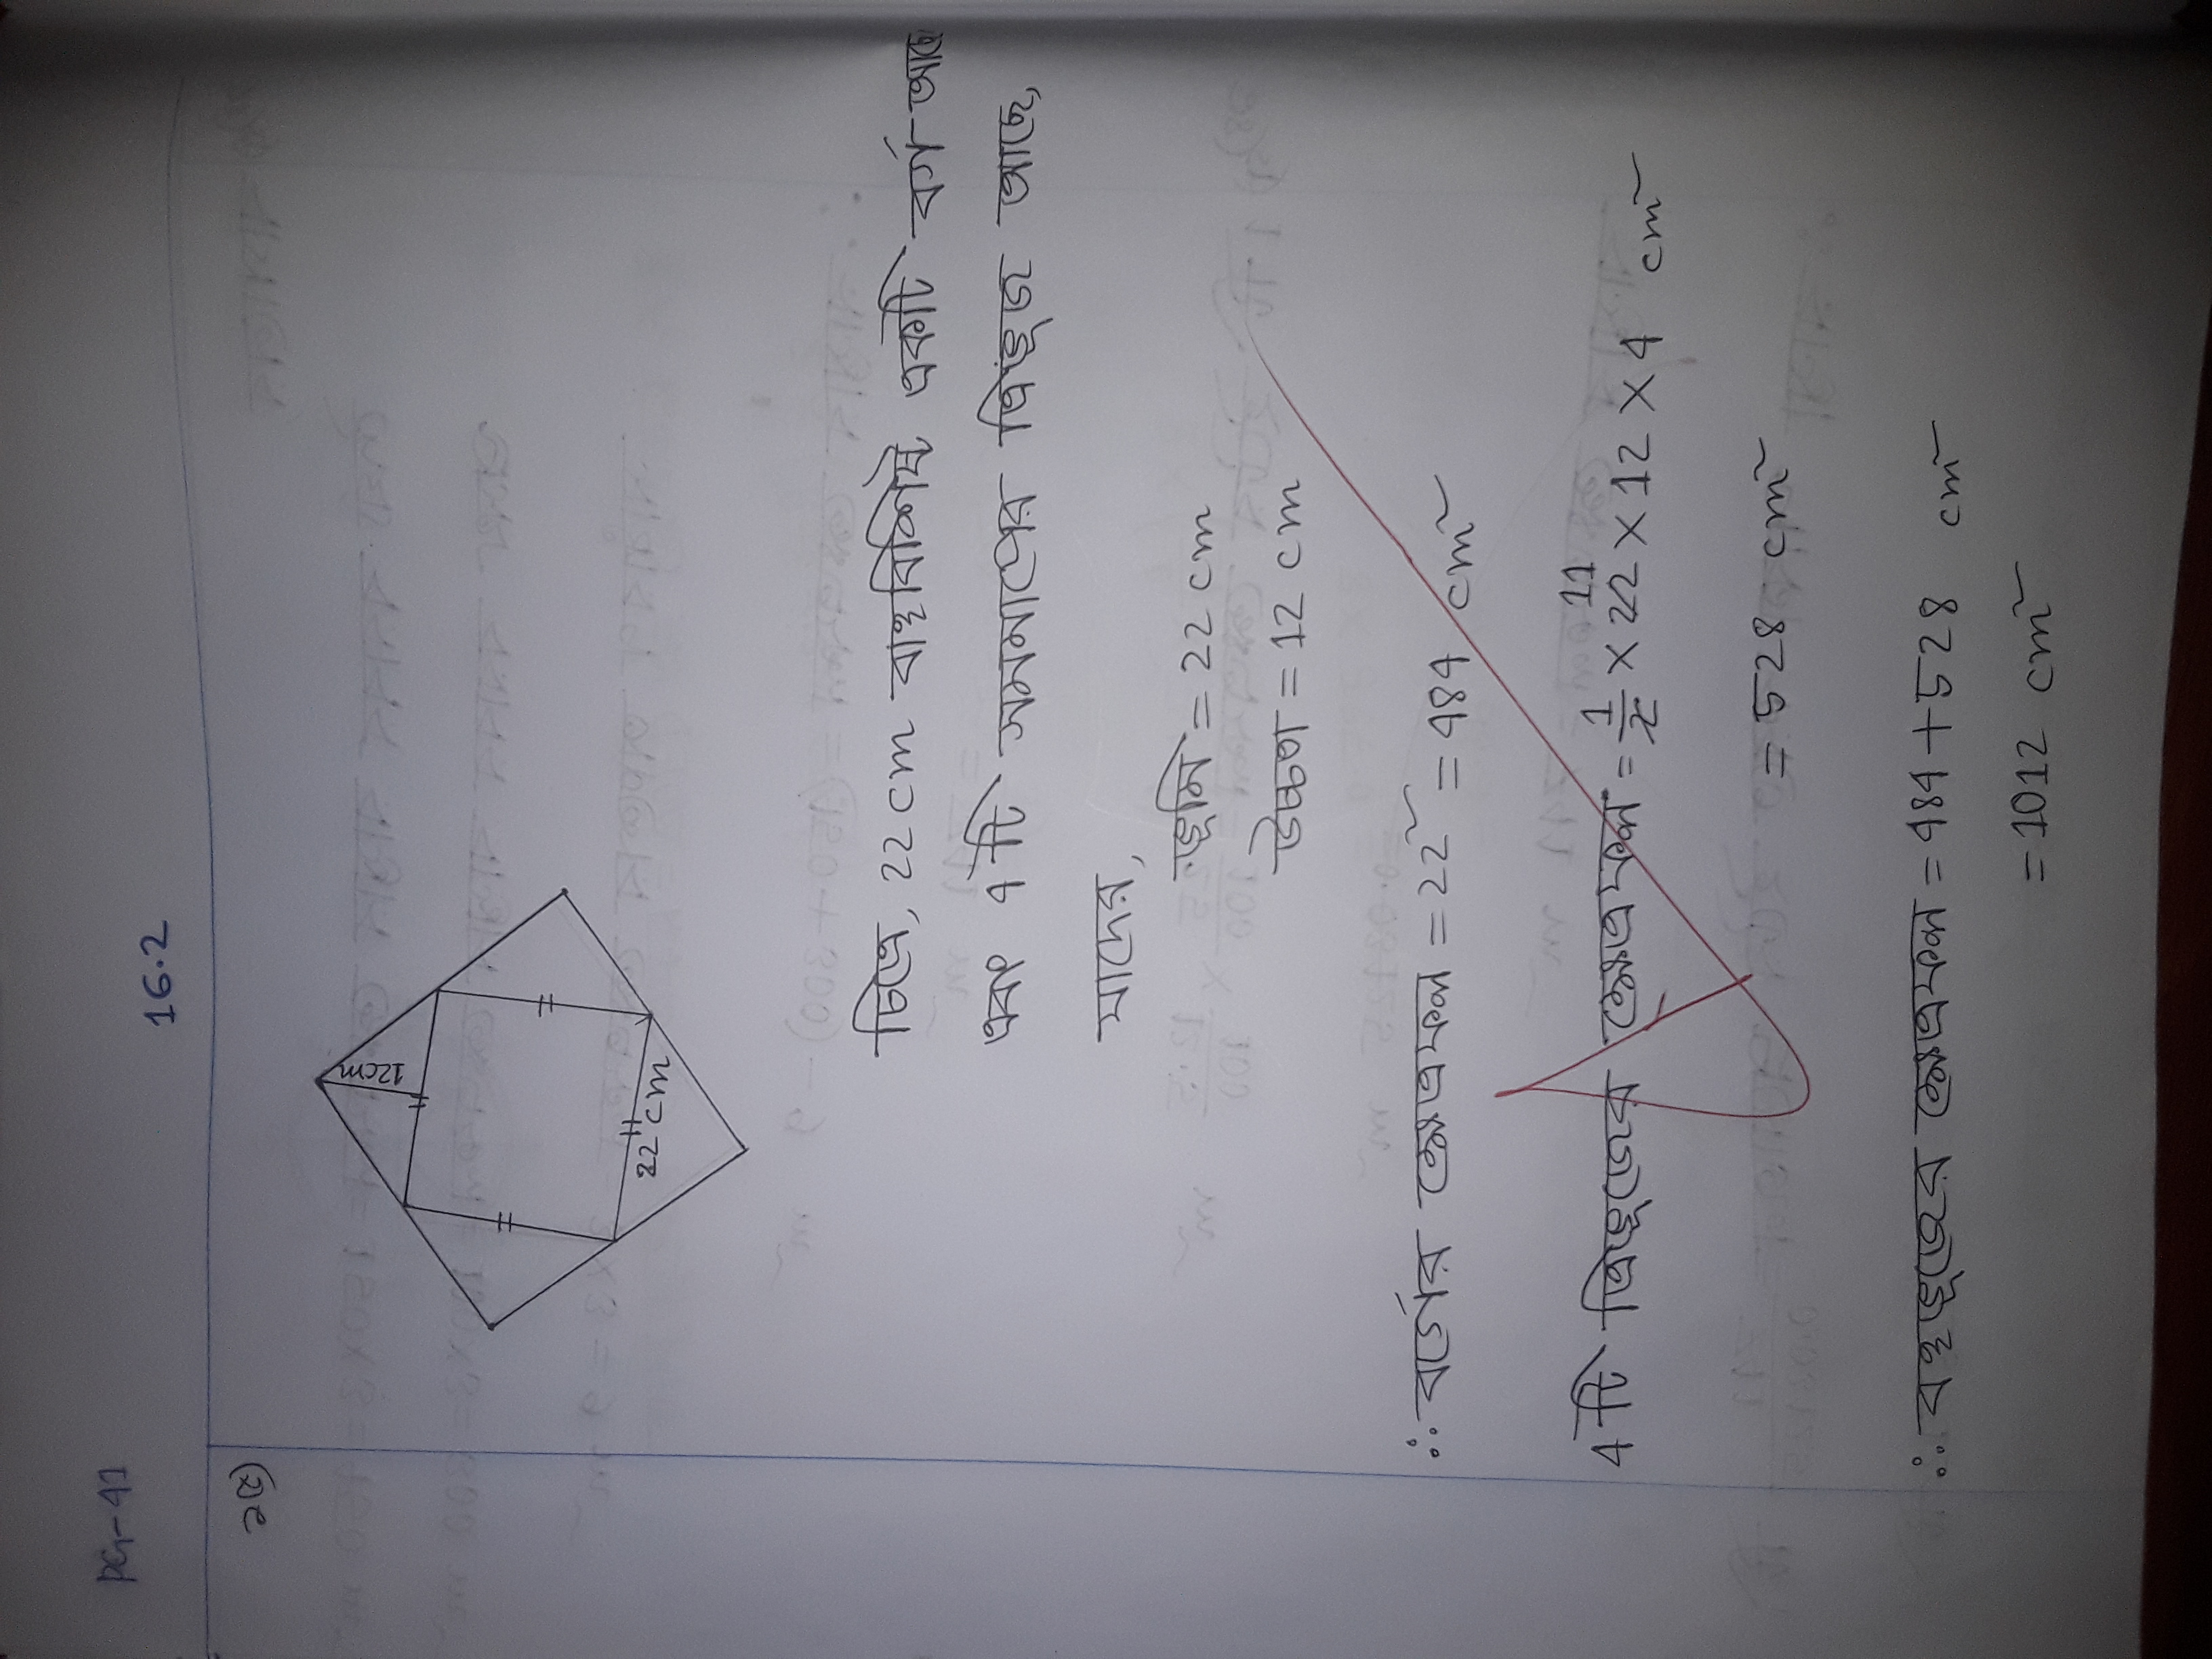 PG-41
16.2
২৫)
12cm
22 cm
চিত্রে, 22 cm বাহুবিশিষ্ট একটি বর্গ আছে
এবং 4 টি সমমাপের ত্রিভুজ আছে,
যাদের,
ভূমি = 22 cm
উচ্চতা = 12 cm
∴ বর্গের ক্ষেত্রফল = 22² = 484 cm²
4 টি ত্রিভুজের ক্ষেত্রফল = 1/2 × 22 11 × 12 × 4 cm²
= 528 cm²
∴ বহুভুজের ক্ষেত্রফল = 484 + 528 cm²
= 1012 cm²